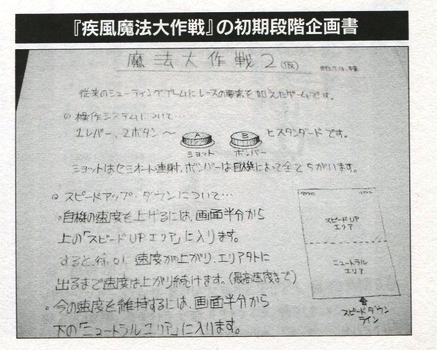 『疾風魔法大作戦』の初期段階企画書
魔法大作戦2(仮)
従来のシューティングゲームにレースの要素を加えたゲームです。
◎ 操作システムについて…
1レバー、2ボタン〜
A
B
とスタンダードです。
ショット
ボンバー
ショットはセミオート連射、ボンバーは自機によって全てちがいます。
◎ スピードアップ・ダウンについて…
◦自機の速度を上げるには、画面半分から
上の「スピードUPエリア」に入ります。
すると
速度が上がり、エリア外に
出るまで速度は上がり続けます。(最高速度まで)
◦今の速度を維持するには、画面半分から
下の「ニュートラルエリア」に入ります。
スピードUP
エリア
ニュートラル
エリア
スピードダウン
ライン